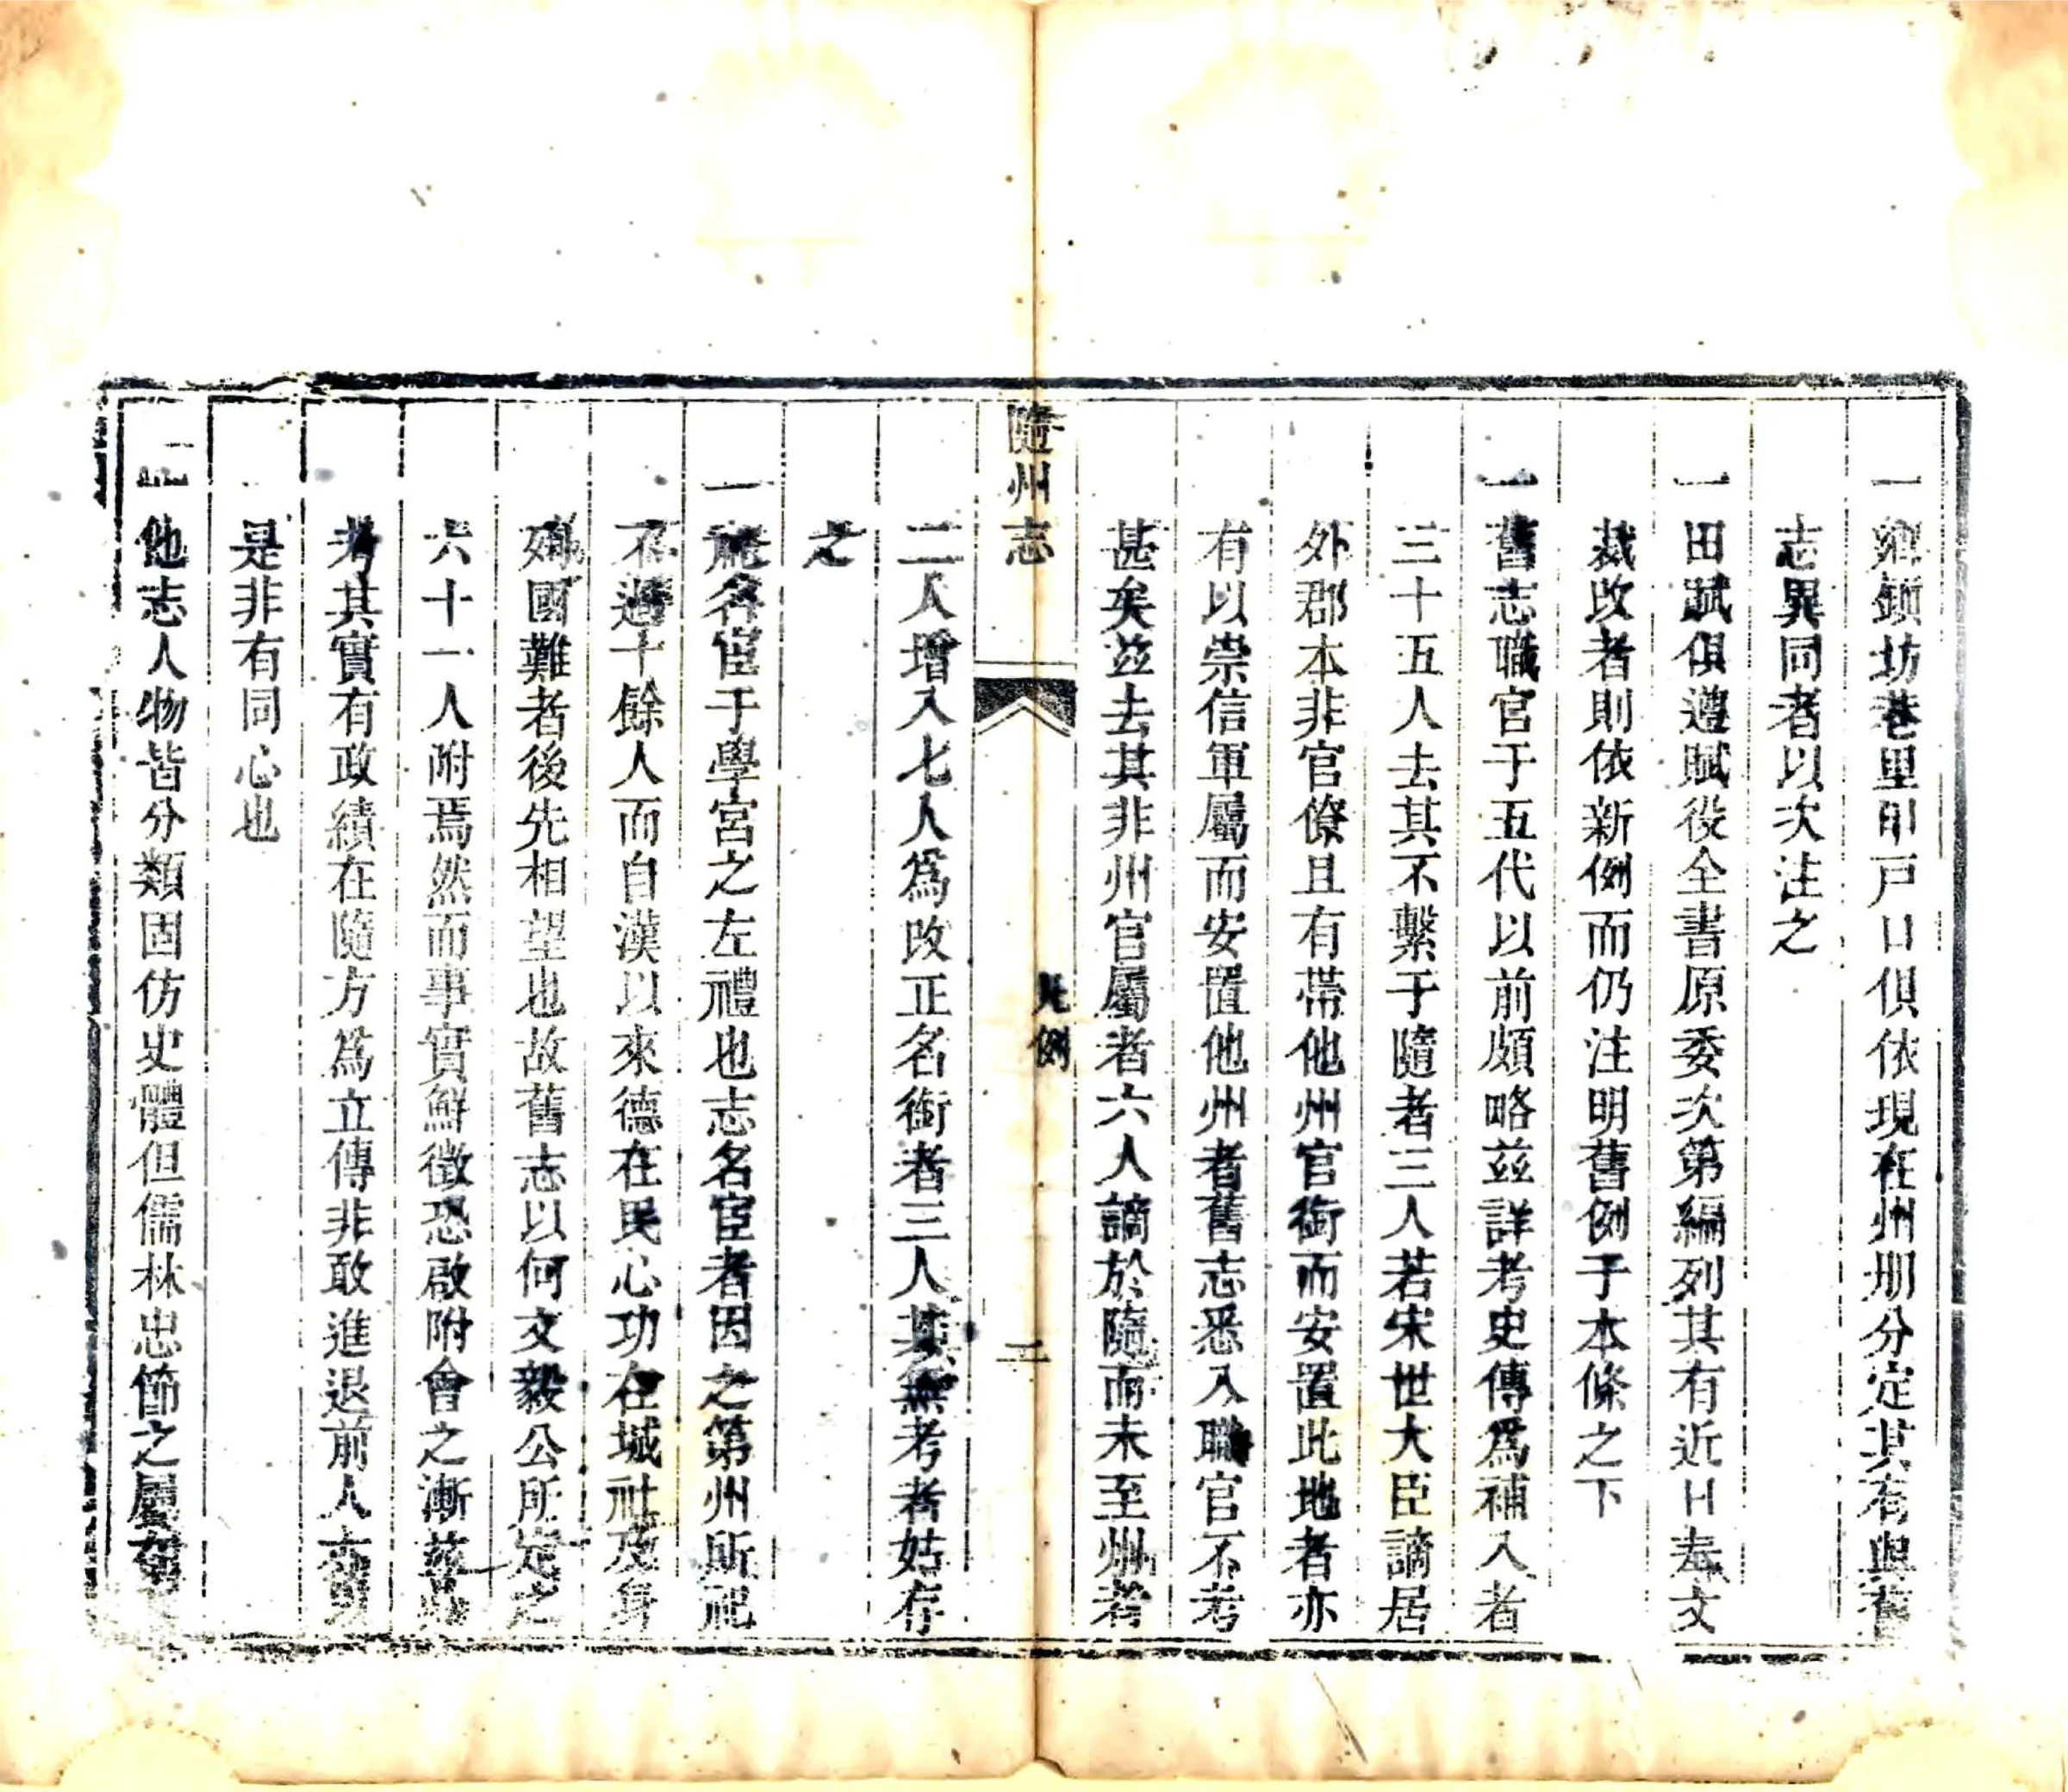 一鄉鎮坊巷里甲戸口俱依現在州册分定其有與舊
志異同者以次注之
一田賦俱遵賦役全書原委次第編列其有近日奉文
裁改者則依新例而仍注明舊例于本條之下
一舊志職官于五代以前頗略兹詳考史傳爲補入者
三十五人去其不繫于隨者三人若宋世大臣謫居
外郡本非官僚且有帶他州官銜而安置此地者亦
有以崇信軍屬而安置他州者舊志悉入職官不考
甚矣兹去其非州官屬者六人謫於隨而未至州者
隨州志
凡例
二
二人增入七人爲改正名銜者三人其無考者姑存
之
一祀名宦于學宮之左禮也志名宦者因之第州所祀
不過十餘人而自漢以來德在民心功在城社及身
殉國難者後先相望也故舊志以何文毅公所定之
六十一人附焉然而事實鮮徵恐啟附會之漸兹
考其實有政績在隨方爲立傳非敢進退前人
是非有同心也
一他志人物皆分類固仿史體但儒林忠節之屬